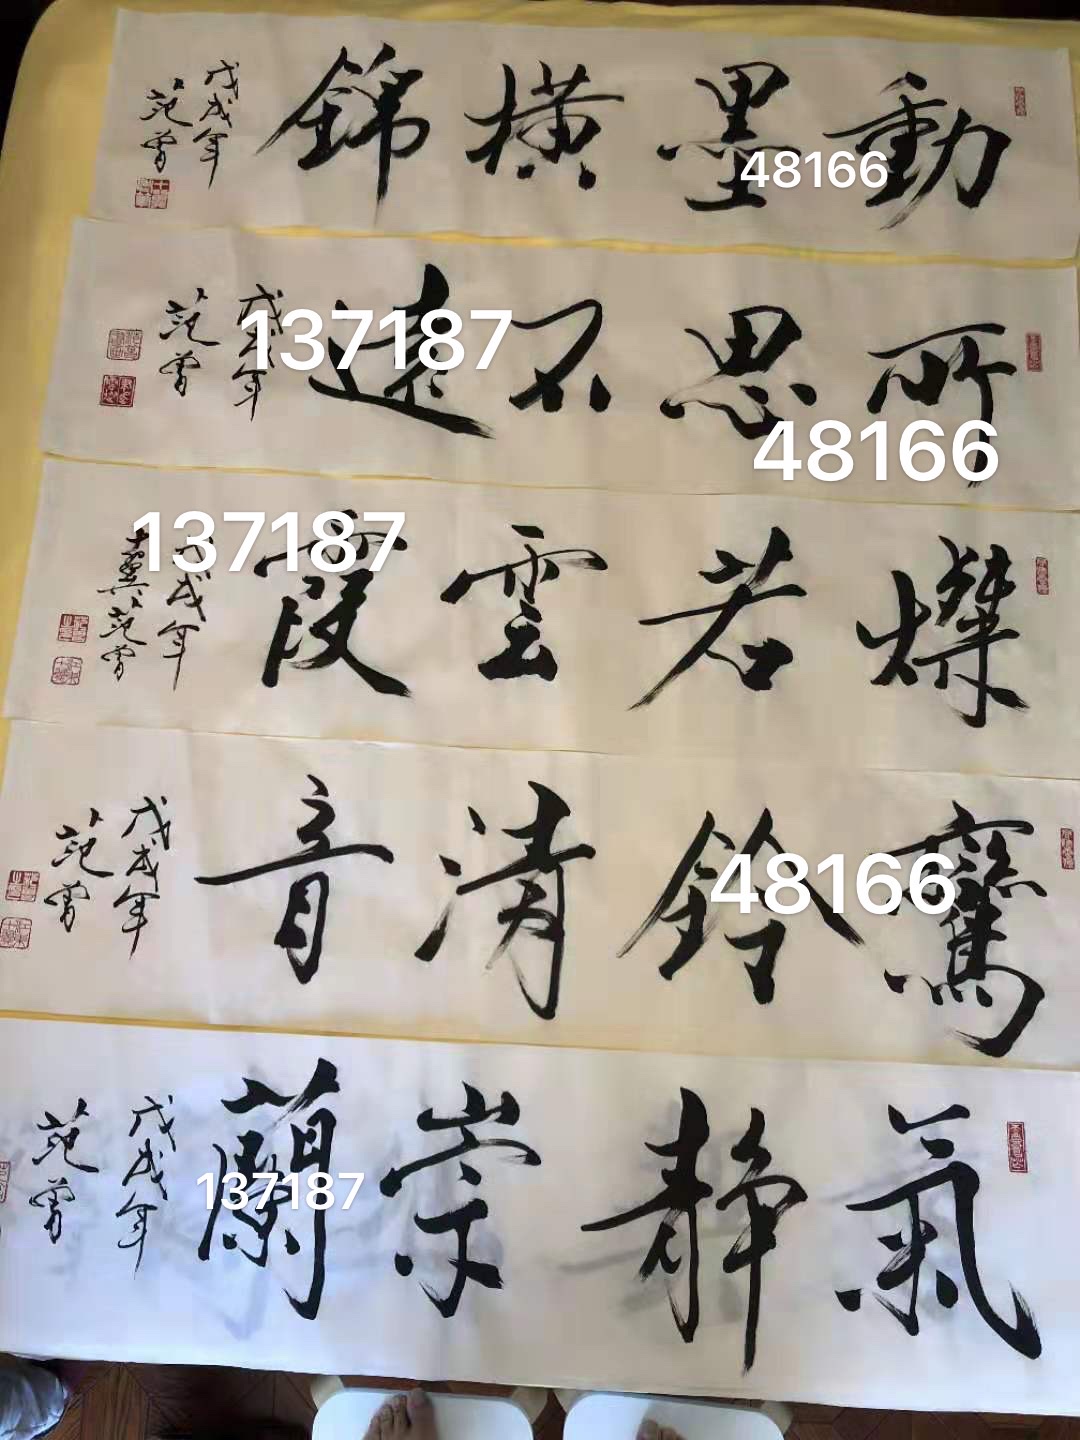 動墨橫錦
戊戌年
范曾
48166
所思不遠
戊戌年
范曾
137187
48166
燦若雲霞
戊戌年
十翼范曾
137187
鸞鈴清音
戊戌年
范曾
48166
氣靜崇蘭
戊戌年
范曾
137187